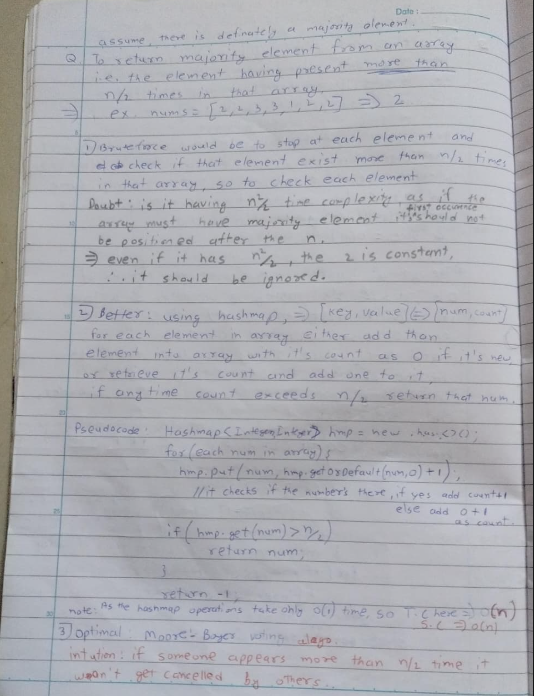 Date :
assume, there is definately a majority element.
Q To return majority element from an array
i.e. the element having present more than
n/2 times in that array.
⇒ ex. nums = [2,2,3,3,1,2,2] ⇒ 2
1) Bruteforce would be to stop at each element and
check if that element exist more than n/2 times
in that array, so to check each element
Doubt : is it having n²/2 time complexity, as if the
array must have majority element it's first occurence should not
be positioned after the n.
⇒ even if it has n²/2, the 2 is constant,
∴ it should be ignored.
2) Better : using hashmap, ⇒ [key, value] ⇒ [num, count]
for each element in array either add than
element into array with it's count as 0 if it's new
or retrieve it's count and add one to it,
if any time count exceeds n/2 return that num.
Pseudocode : Hashmap<Integer,Integer> hmp = new .has.<>();
for(each num in array){
hmp.put(num, hmp.getOrDefault(num,0)+1);
//it checks if the number's there, if yes add count+1
else add 0+1
as count.
if(hmp.get(num)>n/2)
return num;
}
return -1;
note: As the hashmap operations take only O(1) time, so T.C here ⇒ O(n)
S.C ⇒ O(n)
3) Optimal : Moore-Boyer voting algo.
intution: if someone appears more than n/2 time it
won't get cancelled by others..